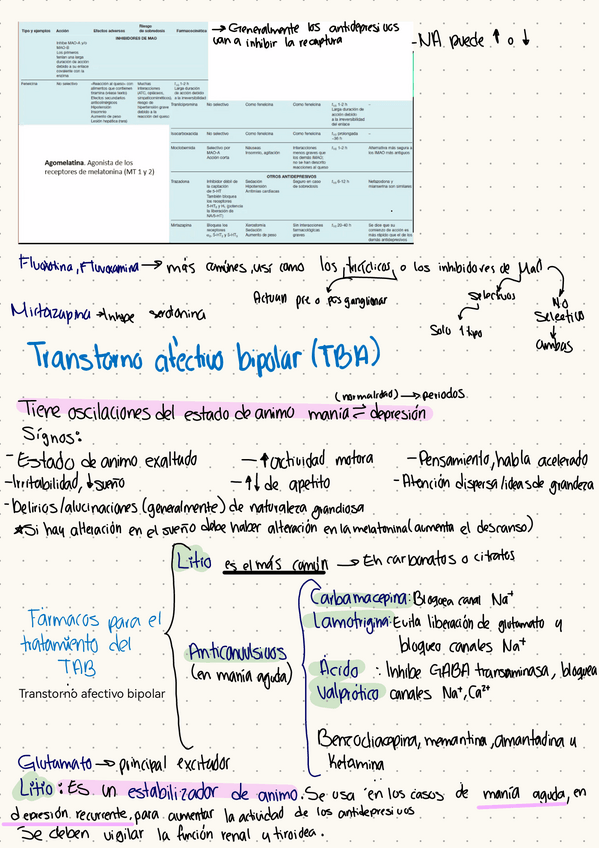 Tipo y ejemplos Acción Efectos adversos Riesgo de sobredosis Farmacocinética
INHIBIDORES DE MAO
→ Generalmente los antidepresivos
van a inhibir la recaptura
- NA puede ↑ o ↓
Inhibe MAO-A y/o
MAO-B
Los primeros
tienen una larga
duración de acción
debido a su enlace
covalente con la
enzima
Fenelcina No selectivo
«Reacción al queso» con
alimentos que contienen
tiramina (véase texto)
Efectos secundarios
anticolinérgicos
Hipotensión
Insomnio
Aumento de peso
Lesión hepática (rara)
Muchas
interacciones
(ATC, opiáceos,
simpaticomiméticos),
riesgo de
hipertensión grave
debido a la
reacción del queso
t1/2 1-2 h
Larga duración
de acción debido
a la irreversibilidad
Tranilcipromina No selectivo Como fenelcina Como fenelcina t1/2 1-2 h –
Larga duración de
acción debido
a la irreversibilidad
del enlace
Isocarboxacida No selectivo Como fenelcina Como fenelcina t1/2 prolongada –
Moclobemida
Selectivo por
MAO-A
Acción corta
Náuseas
Insomnio, agitación
Interacciones
menos graves que
los demás IMAO;
no se han descrito
reacciones al queso
t1/2 1-2 h
Alternativa más segura a
los IMAO más antiguos
Agomelatina. Agonista de los
receptores de melatonina (MT 1 y 2)
OTROS ANTIDEPRESIVOS
Trazodona
Inhibidor débil de
la captación
de 5-HT
También bloquea
los receptores
Sedación
Hipotensión
Arritmias cardíacas
Seguro en caso
de sobredosis
t1/2 6-12 h
Nefazodona y
mianserina son similares
Mirtazapina
Bloquea los
receptores
α2, 5-HT2 y 5-HT3
Xerostomía
Sedación
Aumento de peso
Sin interacciones
farmacológicas
graves
t1/2 20-40 h
Se dice que su
comienzo de acción es
más rápido que el de los
demás antidepresivos
Fluoxotina, Fluvoxamina → más comúnes, usr como los tricíclicos, o los inhibidores de Mao
Actuan pre o pos ganglionar
Selectivos
No
Selectivo
Solo 1 tipo
ambas
Mirtazapina → Inhibe serotonina
Transtorno afectivo bipolar (TBA)
(normalidad) → periodos
Tiene oscilaciones del estado de animo manía ⇌ depresión
Sígnos:
- Estado de animo exaltado
- ↑ actividad motora
- Pensamiento, habla acelerado
- Irritabilidad, ↓ sueño
- ↑↓ de apetito
- Atención dispersa/ideas de grandeza
- Delirios/alucinaciones (generalmente) de naturaleza grandiosa
* Si hay alteración en el sueño debe haber alteración en la melatonina (aumenta el descanso)
Litio es el más común → En carbonatos o citratos
Fármacos para el
tratamiento del
TAB
Transtorno afectivo bipolar
Anticonvulsivos
(en manía aguda)
Carbamacepina: Bloquea canal Na⁺
Lamotrigina: Evita liberación de glutamato y
bloqueo canales Na⁺
Ácido : Inhibe GABA transaminasa, bloquea
Valprótico canales Na⁺, Ca²⁺
Benzodiacepina, memantina, amantadina y
ketamina
Glutamato → principal excitador
Litio: Es un estabilizador de animo. Se usa en los casos de manía aguda, en
depresión recurrente, para aumentar la actividad de los antidepresivos
Se deben vigilar la función renal y tiroidea.